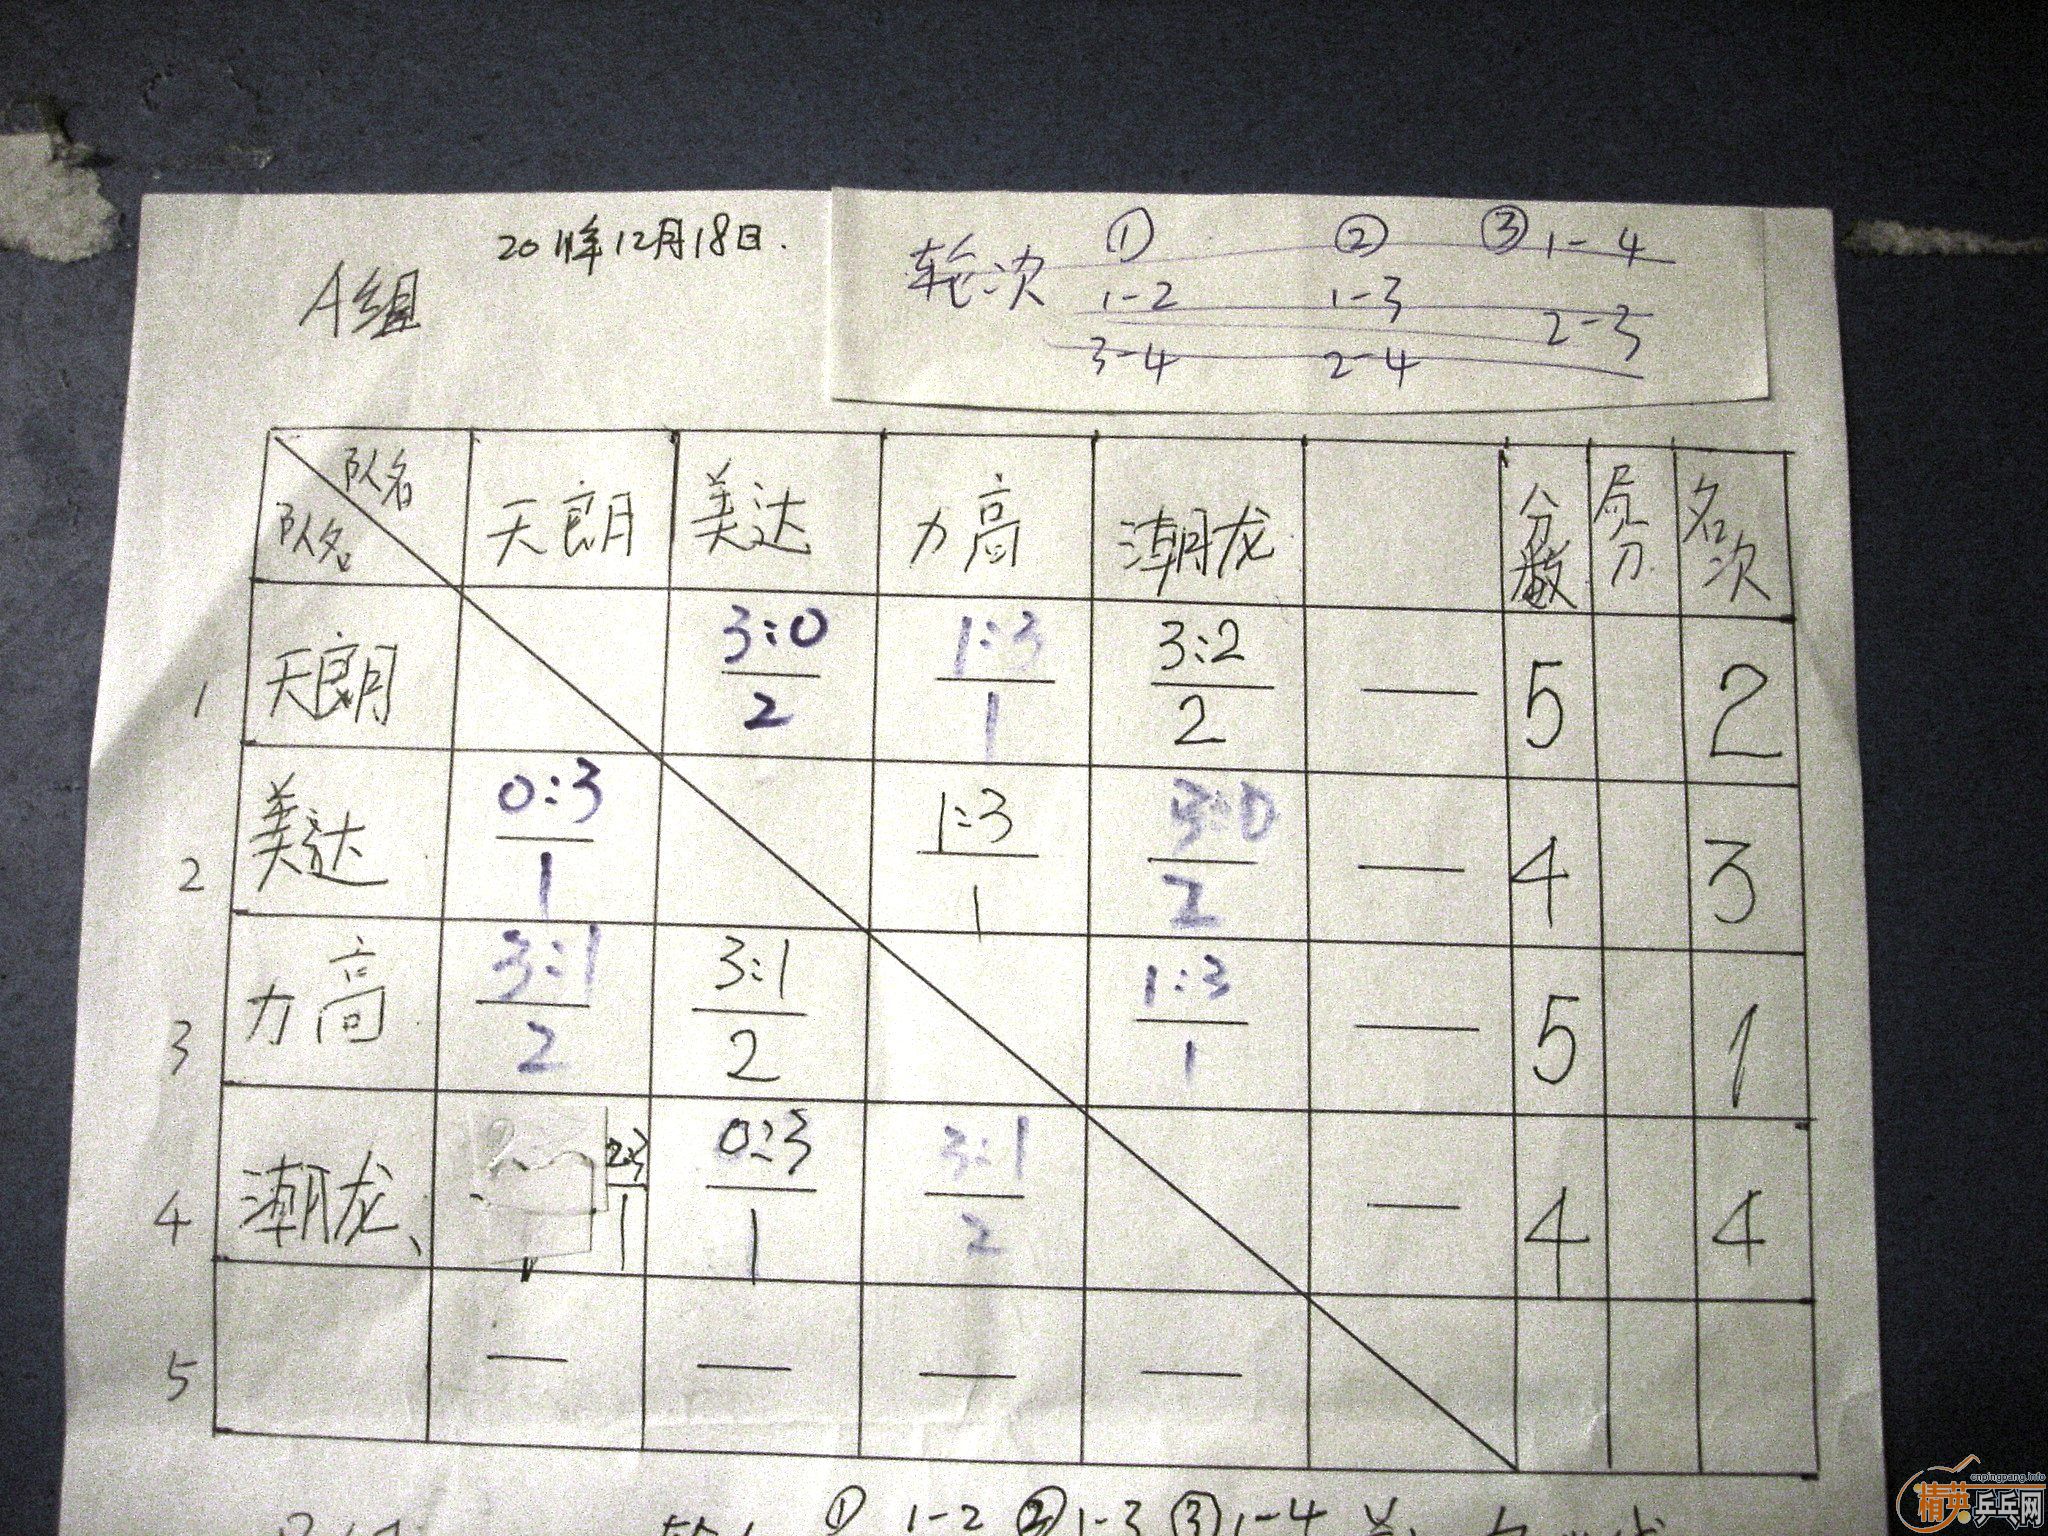 2011年12月18日.
A组
轮次 ① ② ③ 1-4
1-2 1-3 2-3
3-4 2-4
队名
队名 天朗 美达 力高 潮龙 分数 局分 名次
3:0 1:3 3:2
1 天朗 2 1 2 — 5 2
0:3 1:3 3:0
2 美达 1 1 2 — 4 3
3:1 3:1 1:3
3 力高 2 2 1 — 5 1
2:3 0:3 3:1
4 潮龙、 1 1 2 — 4 4
5 — — — —
① 1-2 ② 1-3 ③ 1-4
cnpingpang.info
精英乒乓网